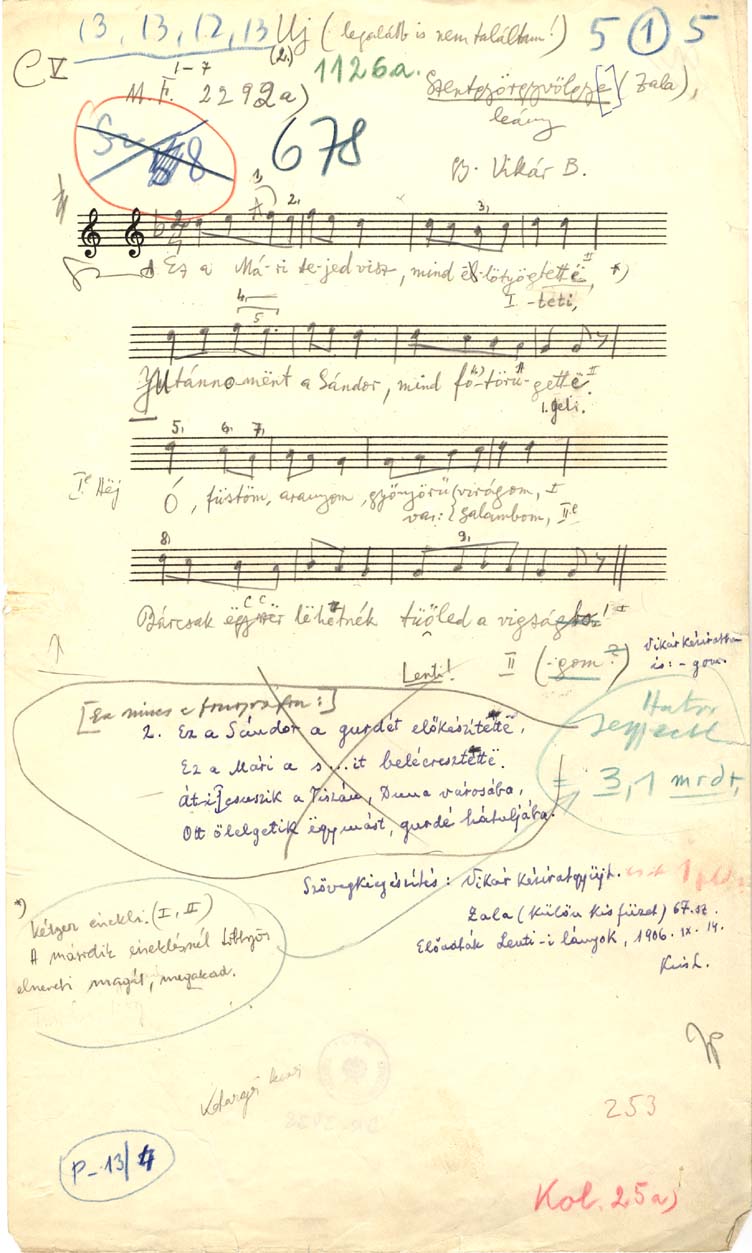 13, 13, 12, 13 Uj (legalább is nem találtam!) 5 ① 5
C V
(2.)
1126a.
1–7
M. F. 2292a)
Szentgyörgyvölgye (Zala),
leány
678
Gy. Vikár B.
1, 2. 3.
Ez a Má-ri te-jed visz, mind el-lötyögtettë, II *)
I -teti,
4. 5
Utánno mënt a Sándor, mind fő-törü-gettë. II
I. geli.
5. 6. 7.
I. Héj
Ó, füstöm, aranyom, gyönyörü virágom, I
var: galambom, II
8. 9.
Bárcsak lëhetnék tüőled a vigság
Lenti! II (-gom?)
Vikár kéziratban
is: -gom.
[Ez nincs a fonográfon:]
2. Ez a Sándor a gurdét előkészítëttë,
Ez a Mári a s...it belécresztëttë.
át-i csuszik a Tiszán, Duna városába,
Ott ölelgetik ëgymást, gurdé hátuljába.
= 3,1 mrdr,
Szövegkiegészítés: Vikár kéziratgyüjt.
Zala (Külön kis füzet) 67. sz.
Előadták Lenti-i lányok, 1906. IX. 14.
Kiss L.
*)
Kétszer énekli. (I, II)
A második éneklésnél többször
elneveti magát, megakad.
253
P-13/4
Kol. 25a)